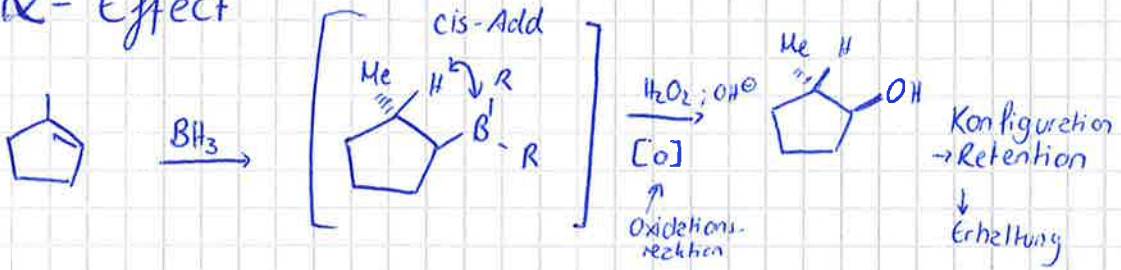 α- Effect
cis-Add
Me H R
BH₃
B
R
H₂O₂ ; OH⊖
[O]
Oxidations-
reaktion
Me H
OH
Konfiguration
→ Retention
↓
Erhaltung